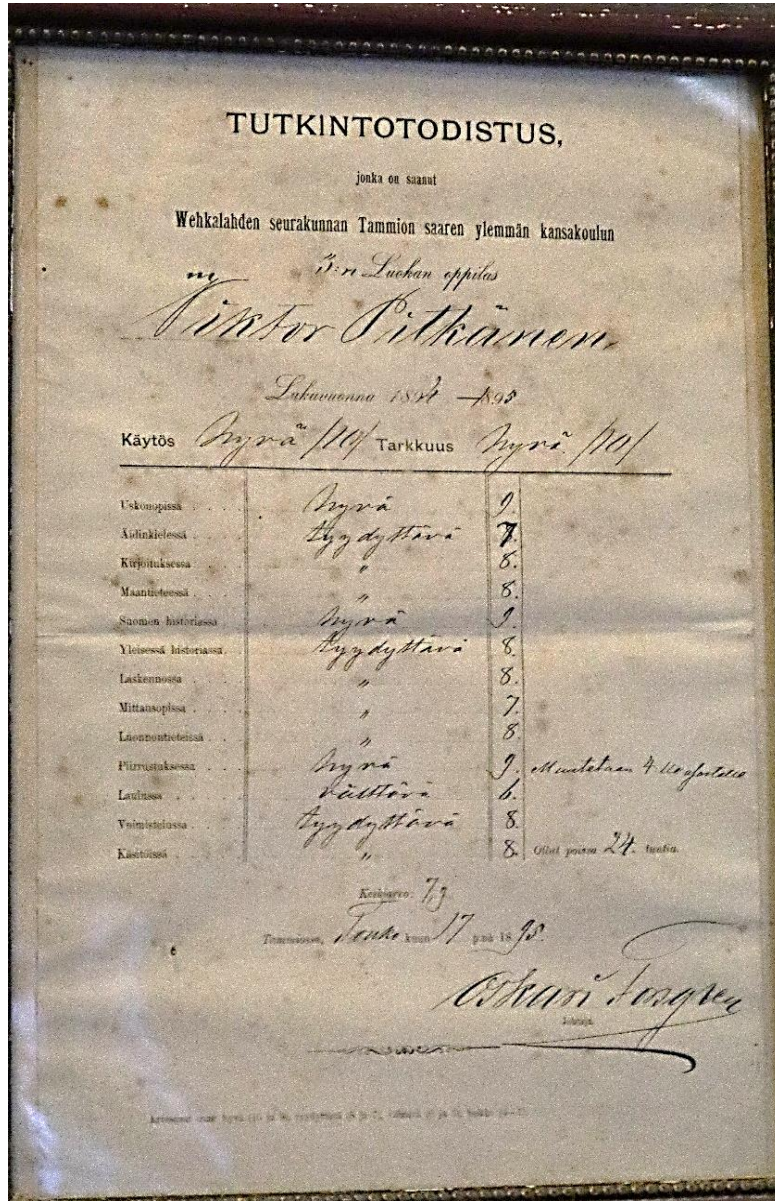 TUTKINTOTODISTUS,
jonka on saanut
Wehkalahden seurakunnan Tammion saaren ylemmän kansakoulun
3:n Luokan oppilas
Viktor Pitkänen.
Lukuvuonna 1894—1895
Käytös hyvä /10/ Tarkkuus hyvä. /10/
Uskonopissa . . . . hyvä 9.
Äidinkielessä . . . . tyydyttävä 7.
Kirjoituksessa . . . . „ 8.
Maantieteessä . . . . „ 8.
Suomen historiassa hyvä 9.
Yleisessä historiassa. tyydyttävä 8.
Laskennossa . . . „ 8.
Mittausopissa . . . . „ 7.
Luonnontieteissä . . „ 8.
Piirrustuksessa . . . hyvä 9. Muutetaan 4
Laulussa . . . . välttävä 6.
Voimistelussa . . . tyydyttävä 8.
Käsitöissä . . . . „ 8. Ollut poissa 24. tuntia.
Keskiarvo: 7,9
Tammiossa, Touko kuun 17 p:nä 1895.
Oskari Forsgren
Johtaja.